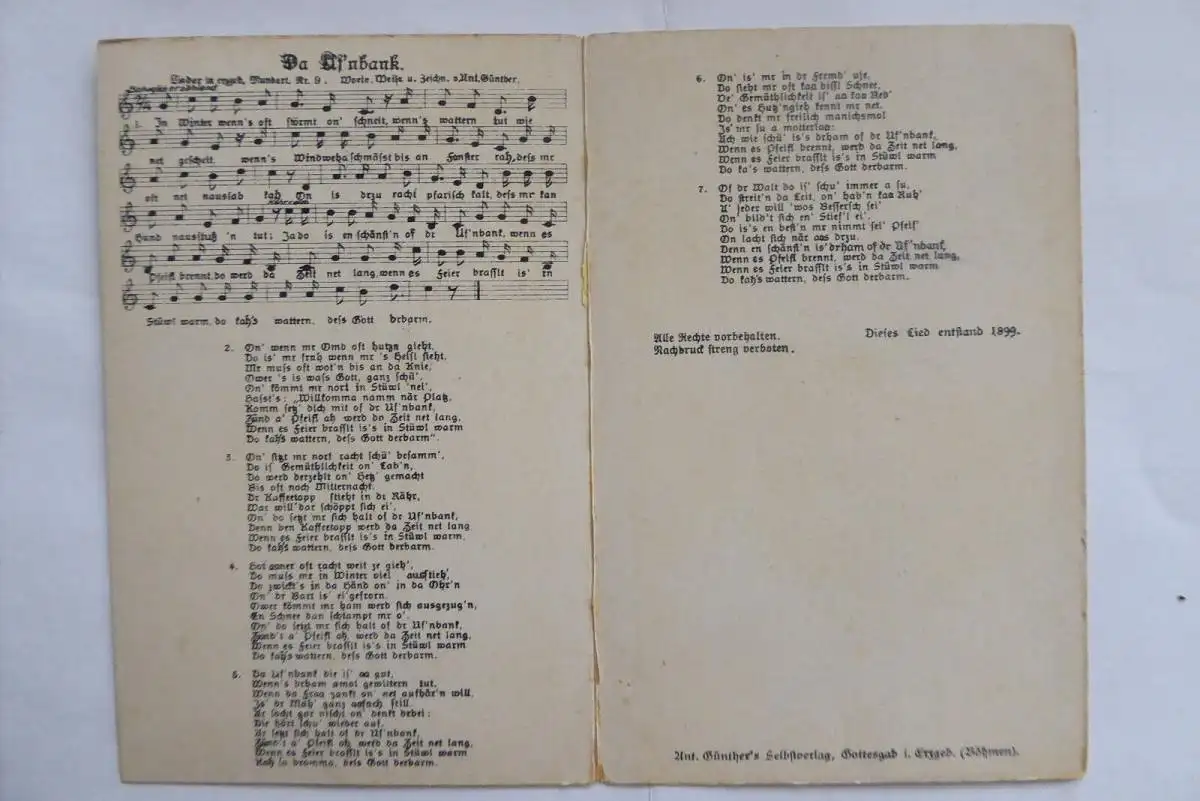 Da Uf'nbank.
Lieder in erzgeb. Mundart. Nr. 9. Worte, Weise u. Zeichn. v. Ant. Günther.
1. In Winter wenn's oft stürmt on' schneit, wenn's wattern tut wie
net gescheit. wenn's Windweha schmässt bis an Fanster rah, dess mr
oft net naussah kah On is drzu racht pfarisch kalt, dess mr kan
Hund nausstuß 'n tut; Ja do is en schänst'n of dr Uf'nbank, wenn es
Pfeifl brennt, do werd da Zeit net lang, wenn es Feier brasslt is' in
Stüwl warm, do kah's wattern, dess Gott drbarm.
2. On' wenn mr Omd oft hutzn gieht,
Do is' mr frah wenn mr 's Heisl sieht.
Mr muss oft wot'n bis an da Knie,
Ower 's is wass Gott, ganz schü',
On' kömmt mr nort in Stüwl 'nei',
Hasst's: „Willkomma namm när Platz,
Komm setz' dich mit of dr Uf'nbank,
Zünd a' Pfeifl ah werd da Zeit net lang,
Wenn es Feier brasslt is's in Stüwl warm
Do kah's wattern, dess Gott derbarm".
3. On' sitzt mr nort racht schü' besamm',
Do is' Gemüthlichkeit on' Lab'n,
Do werd derzehlt on' Hetz' gemacht
Bis oft noch Mitternacht.
Dr Kaffeetopp stieht in dr Rähr,
War will' dar schöppt sich ei',
On' do setzt mr sich halt of dr Uf'nbank,
Denn ben Kaffeetopp werd da Zeit net lang
Wenn es Feier brasslt is's in Stüwl warm,
Do kah's wattern, dess Gott derbarm.
4. Hot aaner oft racht weit ze gieh',
Do muss mr in Winter viel ausstieh',
Do zwickt's in da Händ on' in da Ohr'n
On' dr Bart is' ei'gefrorn.
Ower kömmt mr ham werd sich ausgezug'n,
En Schnee dan schlampt mr o'.
On' do setzt mr sich halt of dr Uf'nbank,
Zünd't a' Pfeifl ah, werd da Zeit net lang,
Wenn es Feier brasslt is's in Stüwl warm
Do kah's wattern, dess Gott derbarm.
5. Da Uf'nbank die is' aa gut,
Wenn's drham amol gewittern tut,
Wenn da Fraa zankt on' net aufhär'n will,
Is' dr Mah' ganz aafach still.
Ar socht gar nischt on' denkt drbei:
Die hört schu' wieder auf.
Ar setzt sich halt of dr Uf'nbank,
Zünd't a' Pfeifl ah werd da Zeit net lang,
Wenn es Feier brasslt is's in Stüwl warm
Kah se bromma, dess Gott derbarm.
6. On' is' mr in dr Fremd' use,
Do sieht mr oft kaa bissl Schnee,
De' Gemüthlichkeit is' aa kaa Red'
On' es Hutz'ngieh kennt mr net.
Do denkt mr freilich manichsmol
Is'mr su a mutterlaa:
Ach wie schü' is's drham of dr Uf'nbank,
Wenn es Pfeifl brennt, werd da Zeit net lang,
Wenn es Feier brasslt is's in Stüwl warm
Do ka's wattern, dess Gott derbarm.
7. Of dr Walt do is' schu' immer a su,
Do streit'n da Leit, on' hab'n kaa Ruh'
A' jeder will 'wos Bessersch sei'
On' bild't sich en' Stief'l ei'.
Do is's en best'n mr nimmt sei' Pfeif'
On lacht sich när aas drzu.
Denn en schänst'n is' drham of dr Uf'nbank,
Wenn es Pfeifl brennt, werd da Zeit net lang,
Wenn es Feier brasslt is's in Stüwl warm
Do kah's wattern, dess Gott derbarm.
Alle Rechte vorbehalten. Dieses Lied entstand 1899.
Nachdruck streng verboten.
Ant. Günther's Selbstverlag, Gottesgab i. Erzgeb. (Böhmen).